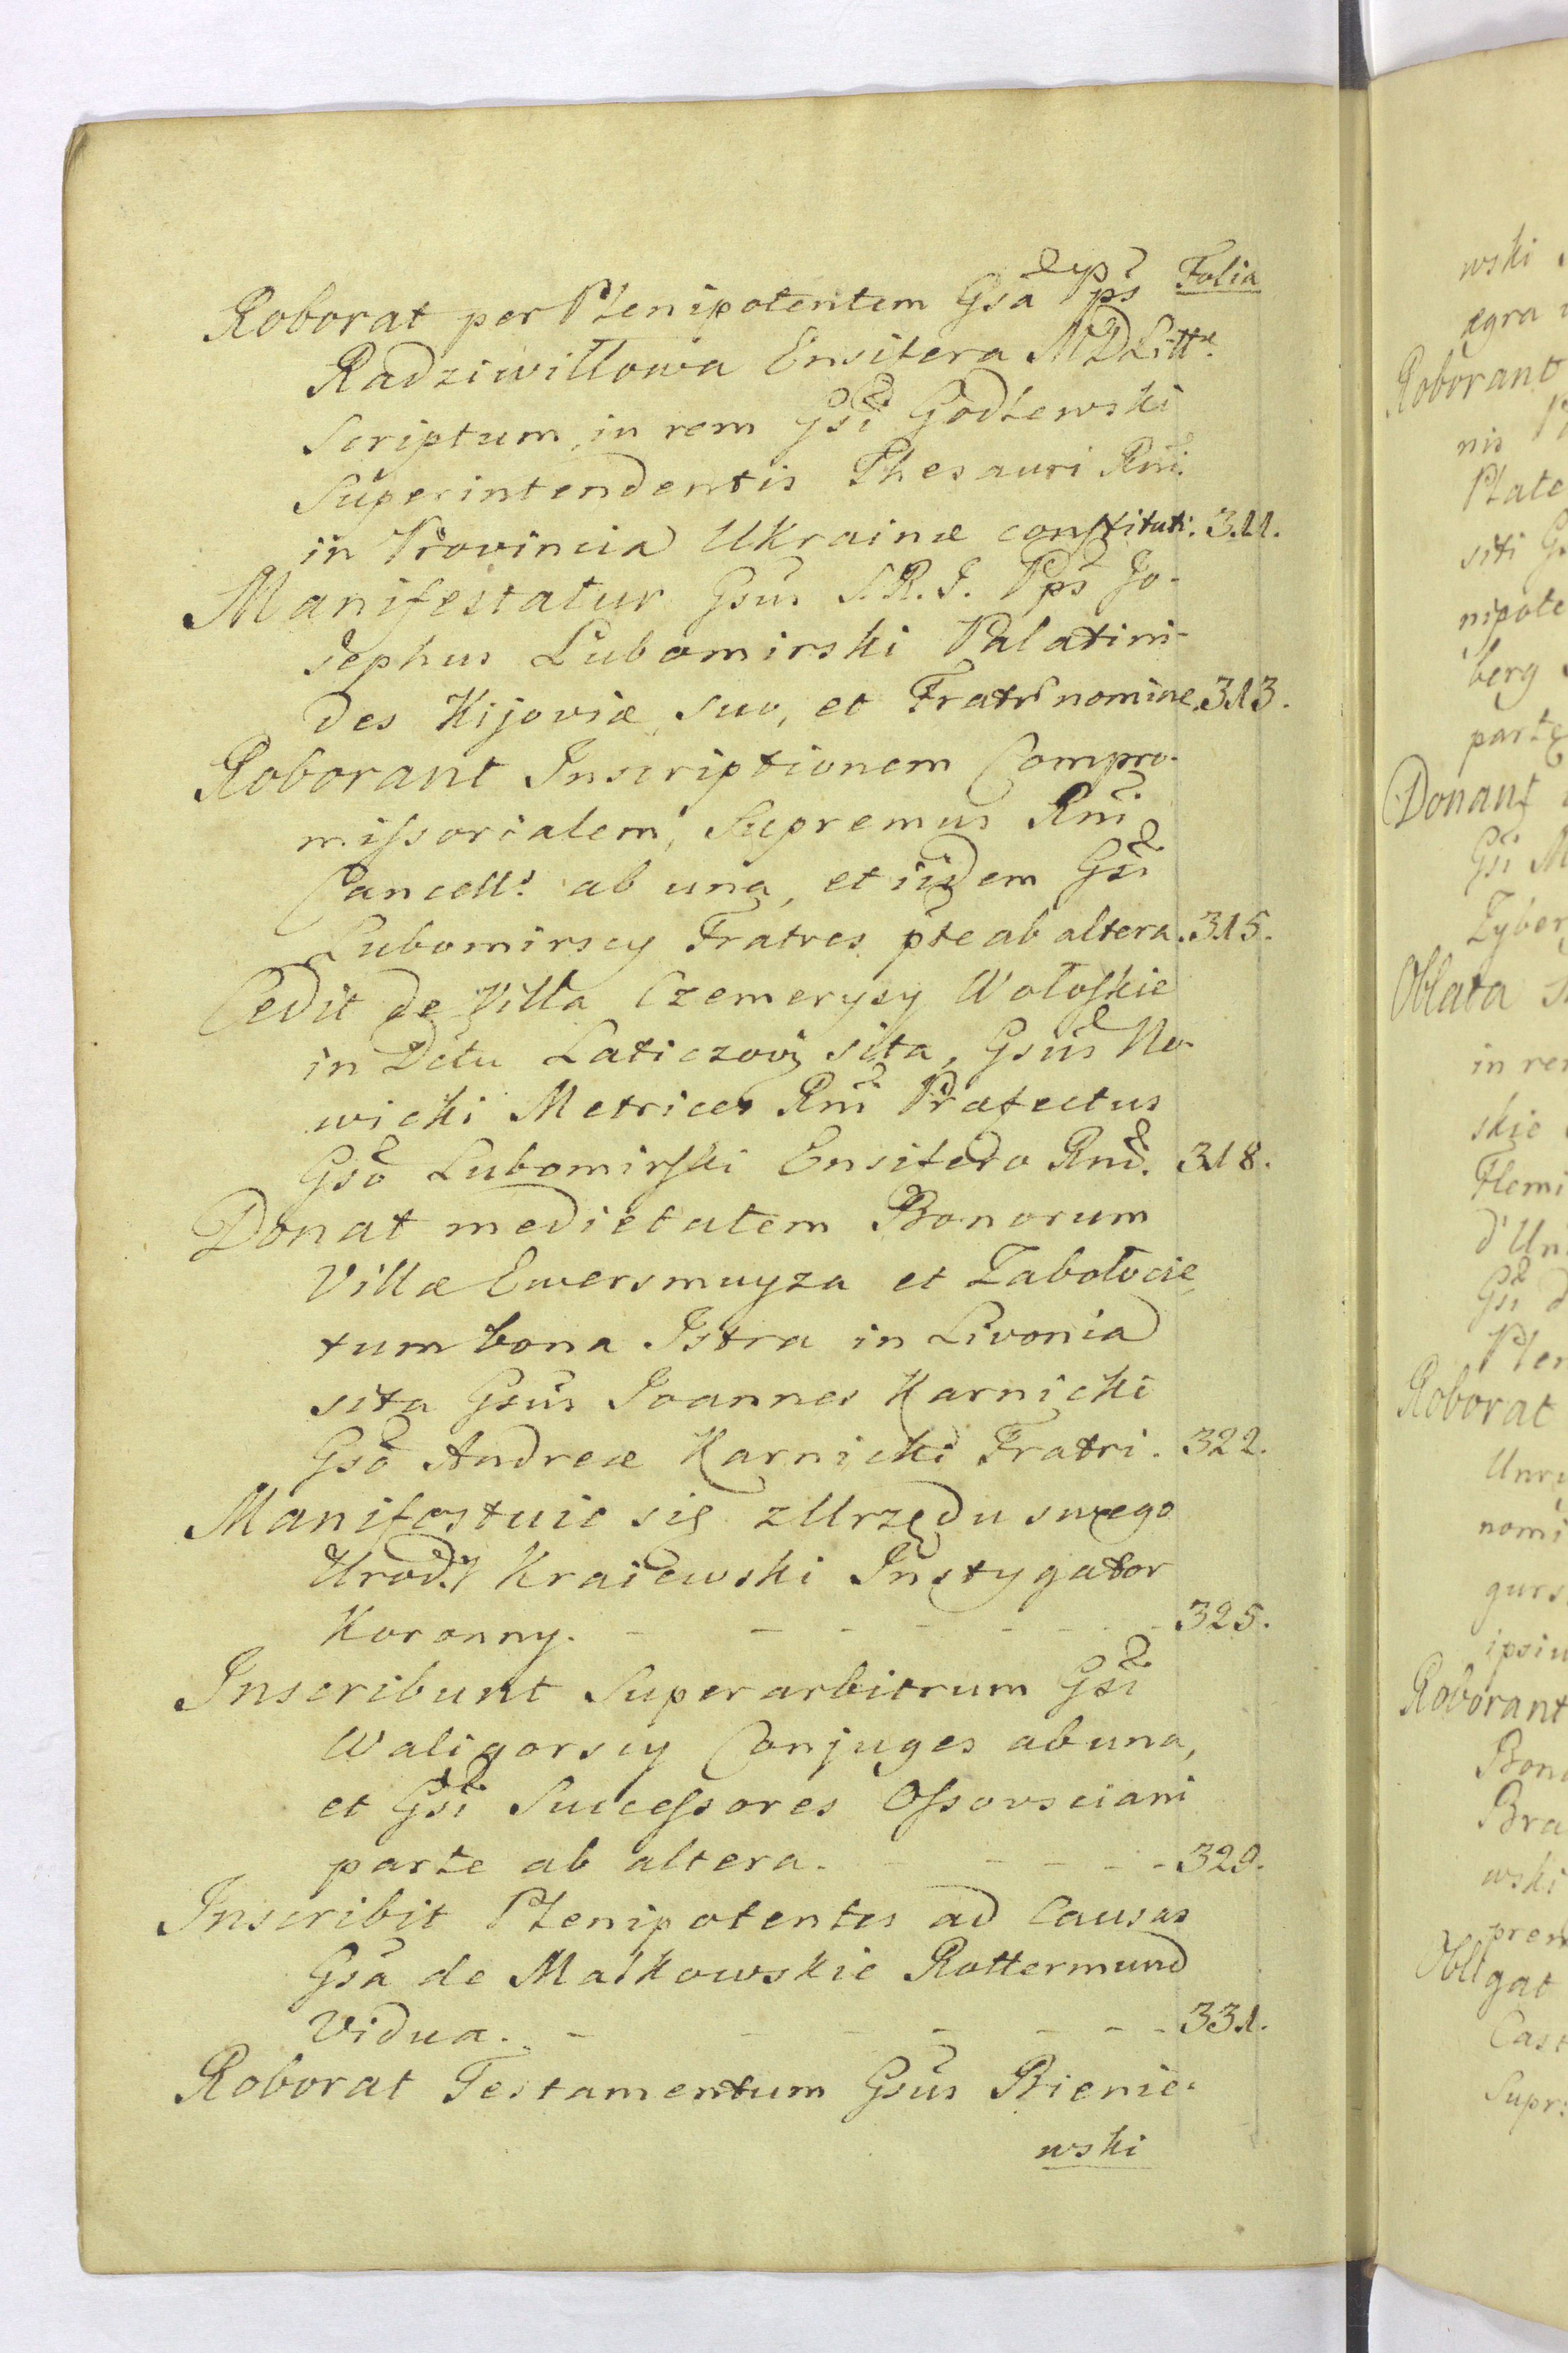 Folia
Roborat per Plenipotentem Gsa Pps
Radziwiłłowa Ensifera MDLitt.
Scriptum, in rem Gsi Godlewski
Superintendentis Thesauri Rni.
in Provincia Ukrainæ constituti. 311.
Manifestatur Gsus S.R.I. Pps Jo-
sephus Lubomirski Palatini-
des Kijoviæ, suo, et Fratrs nomine. 313.
Roborant Inscriptionem Compro-
missorialem, Supremus Rni
Cancells ab una, et iidem Gsi
Lubomirscy Fratres pte ab altera. 315.
Cedit de Villa Czemerysy Wołoskie
in Dctu Laticzovi sita, Gsus No-
wicki Metrices Rni Præfectus
Gso Lubomirski Ensifero Rni. 318.
Donat medietatem Bonorum
Villæ Ewersmuyza et Zabołocie,
tum bona Istra in Livonia
sita Gsus Joannes Karnicki
Gso Andreæ Karnicki Fratri. 322.
Manifestuie się z Urzędu swego
Urodz. Kraiewski Instygator
Koronny. - - - - - - 325.
Inscribunt Superarbitrum Gsi
Waligorscy Conjuges ab una,
et Gsi Successores Ossovsciani
parte ab altera. - - - - 329.
Inscribit Plenipotentes ad Causas
Gsa de Małkowskie Rottermund
Vidua. - - - - - - 331.
Roborat Testamentum Gsus Bienie-
wski
wski
ægra
Roborant
nis
Plate
siti
nipote
berg
parte
Donant
Gsi M
Zyber
Oblata
in rem
skie
Flemi
d'Un
Gsi
Plen
Roborat
Unru
nomi
gurs
ipsiu
Roborant
Bono
Bra
wski
prem
Obligat
Cast
Supr: